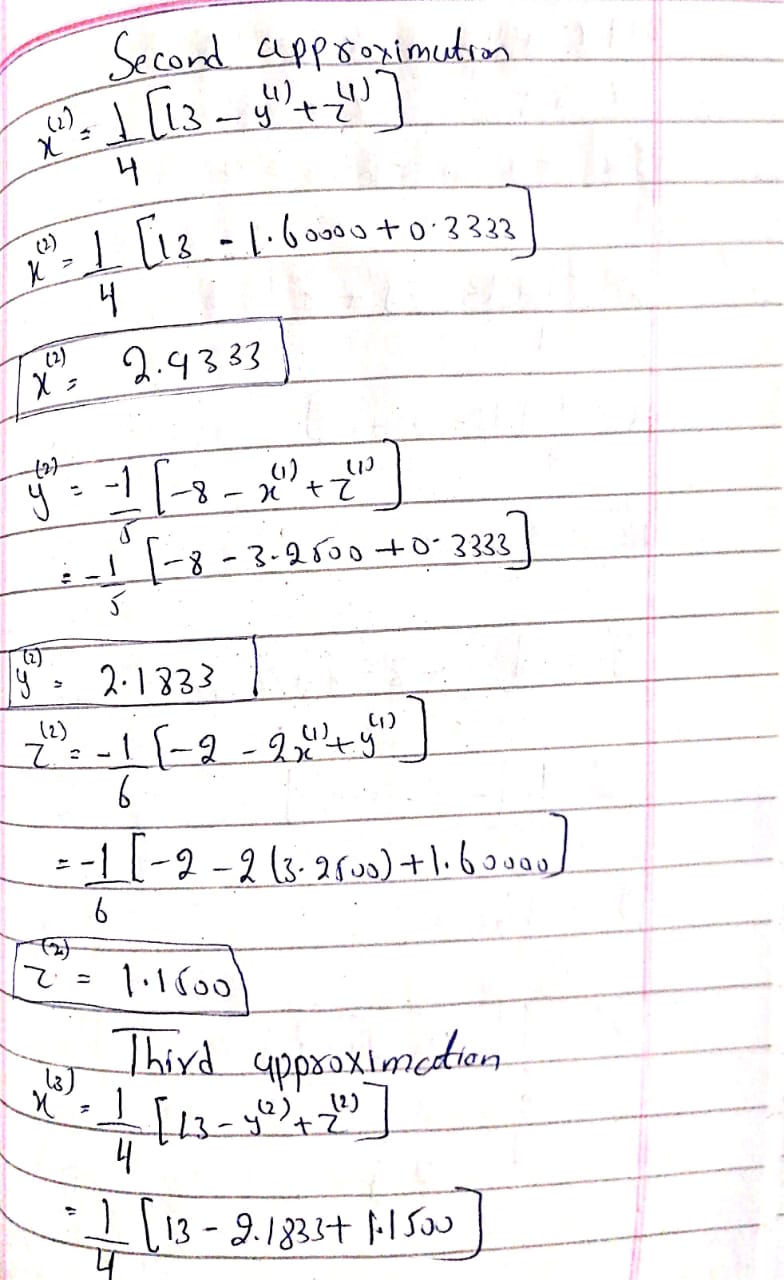 Second approximution
x⁽²⁾ = 1/4 [13 - y⁽¹⁾ + z⁽¹⁾]
x⁽²⁾ = 1/4 [13 - 1.60000 + 0.3333]
x⁽²⁾ = 2.9333
y⁽²⁾ = -1/5 [-8 - x⁽¹⁾ + z⁽¹⁾]
= -1/5 [-8 - 3.2500 + 0.3333]
y⁽²⁾ = 2.1833
z⁽²⁾ = -1/6 [-2 - 2x⁽¹⁾ + y⁽¹⁾]
= -1/6 [-2 - 2(3.2500) + 1.60000]
z⁽²⁾ = 1.1500
Third approximation
x⁽³⁾ = 1/4 [13 - y⁽²⁾ + z⁽²⁾]
= 1/4 [13 - 2.1833 + 1.1500]